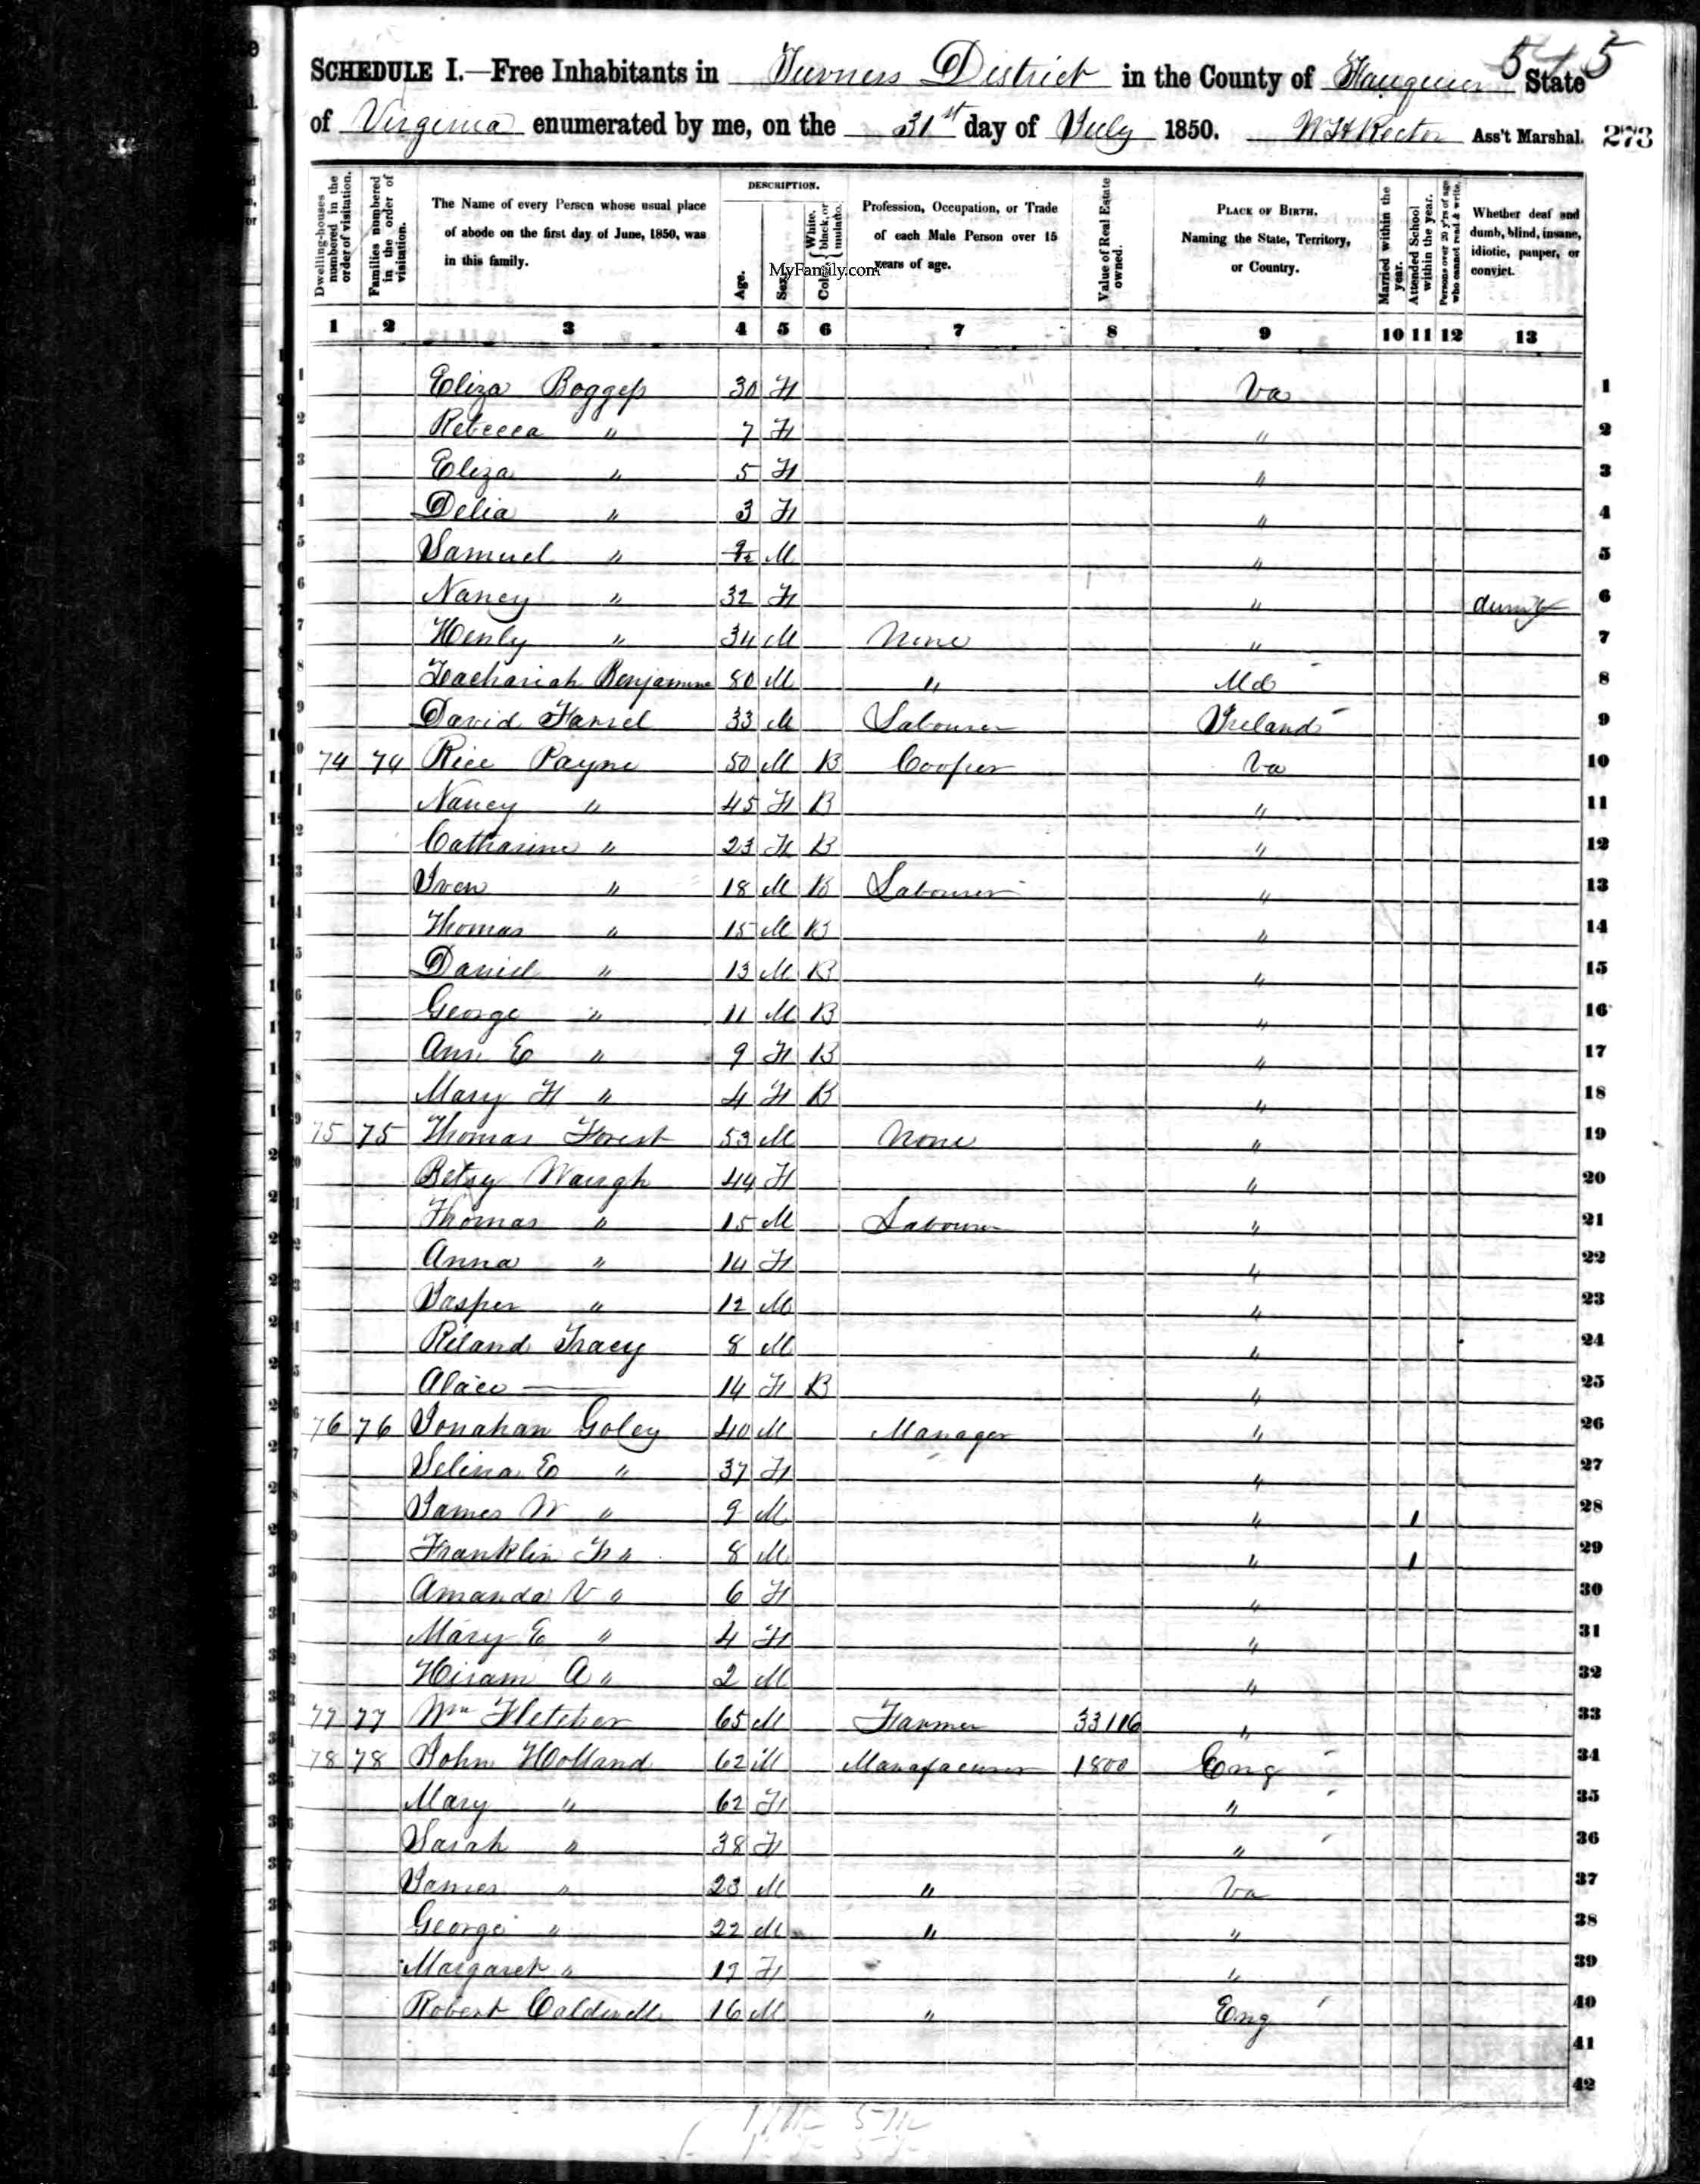 545
SCHEDULE I.—Free Inhabitants in Turners District in the County of Fauquier State
of Virginia enumerated by me, on the 31st day of July 1850. W H Rector Ass't Marshal. 273
Dwelling-houses numbered in the order of visitation.
Families numbered in the order of visitation.
The Name of every Person whose usual place of abode on the first day of June, 1850, was in this family.
DESCRIPTION.
Age.
Sex.
Color { White, black, or mulatto.
Profession, Occupation, or Trade of each Male Person over 15 years of age.
Value of Real Estate owned.
PLACE OF BIRTH, Naming the State, Territory, or Country.
Married within the year.
Attended School within the year.
Persons over 20 y'rs of age who cannot read & write.
Whether deaf and dumb, blind, insane, idiotic, pauper, or convict.
MyFamily.com
1 2 3 4 5 6 7 8 9 10 11 12 13
1 Eliza Boggess 30 F Va 1
2 Rebecca " 7 F " 2
3 Eliza " 5 F " 3
4 Delia " 3 F " 4
5 Samuel " 9/12 M " 5
6 Nancy " 32 F " dumb 6
7 Henly " 34 M None " 7
8 Zachariah Benjamine 80 M " Md 8
9 David Farsel 33 M Labourer Ireland 9
74 74 Rice Payne 50 M B Cooper Va 10
Nancy " 45 F B " 11
Catharine " 23 F B " 12
Iven " 18 M B Labourer " 13
Thomas " 15 M B " 14
Daniel " 13 M B " 15
George " 11 M B " 16
Ann E " 9 F B " 17
Mary F " 4 F B " 18
75 75 Thomas Forest 53 M None " 19
Betsy Waugh 44 F " 20
Thomas " 15 M Labourer " 21
Anna " 14 F " 22
Jasper " 12 M " 23
Riland Tracy 8 M " 24
Alace — 14 F B " 25
76 76 Jonahan Goley 40 M Manager " 26
Selina E " 37 F " 27
James W " 9 M " 1 28
Franklin F " 8 M " 1 29
Amanda V " 6 F " 30
Mary E " 4 F " 31
Hiram A " 2 M " 32
77 77 Wm Fletcher 65 M Farmer 33116 " 33
78 78 John Holland 62 M Manafacurer 1800 Eng 34
Mary " 62 F " 35
Sarah " 38 F " 36
James " 23 M " Va 37
George " 22 M " " 38
Margaret " 19 F " 39
Robert Caldwell 16 M " Eng 40
41
42